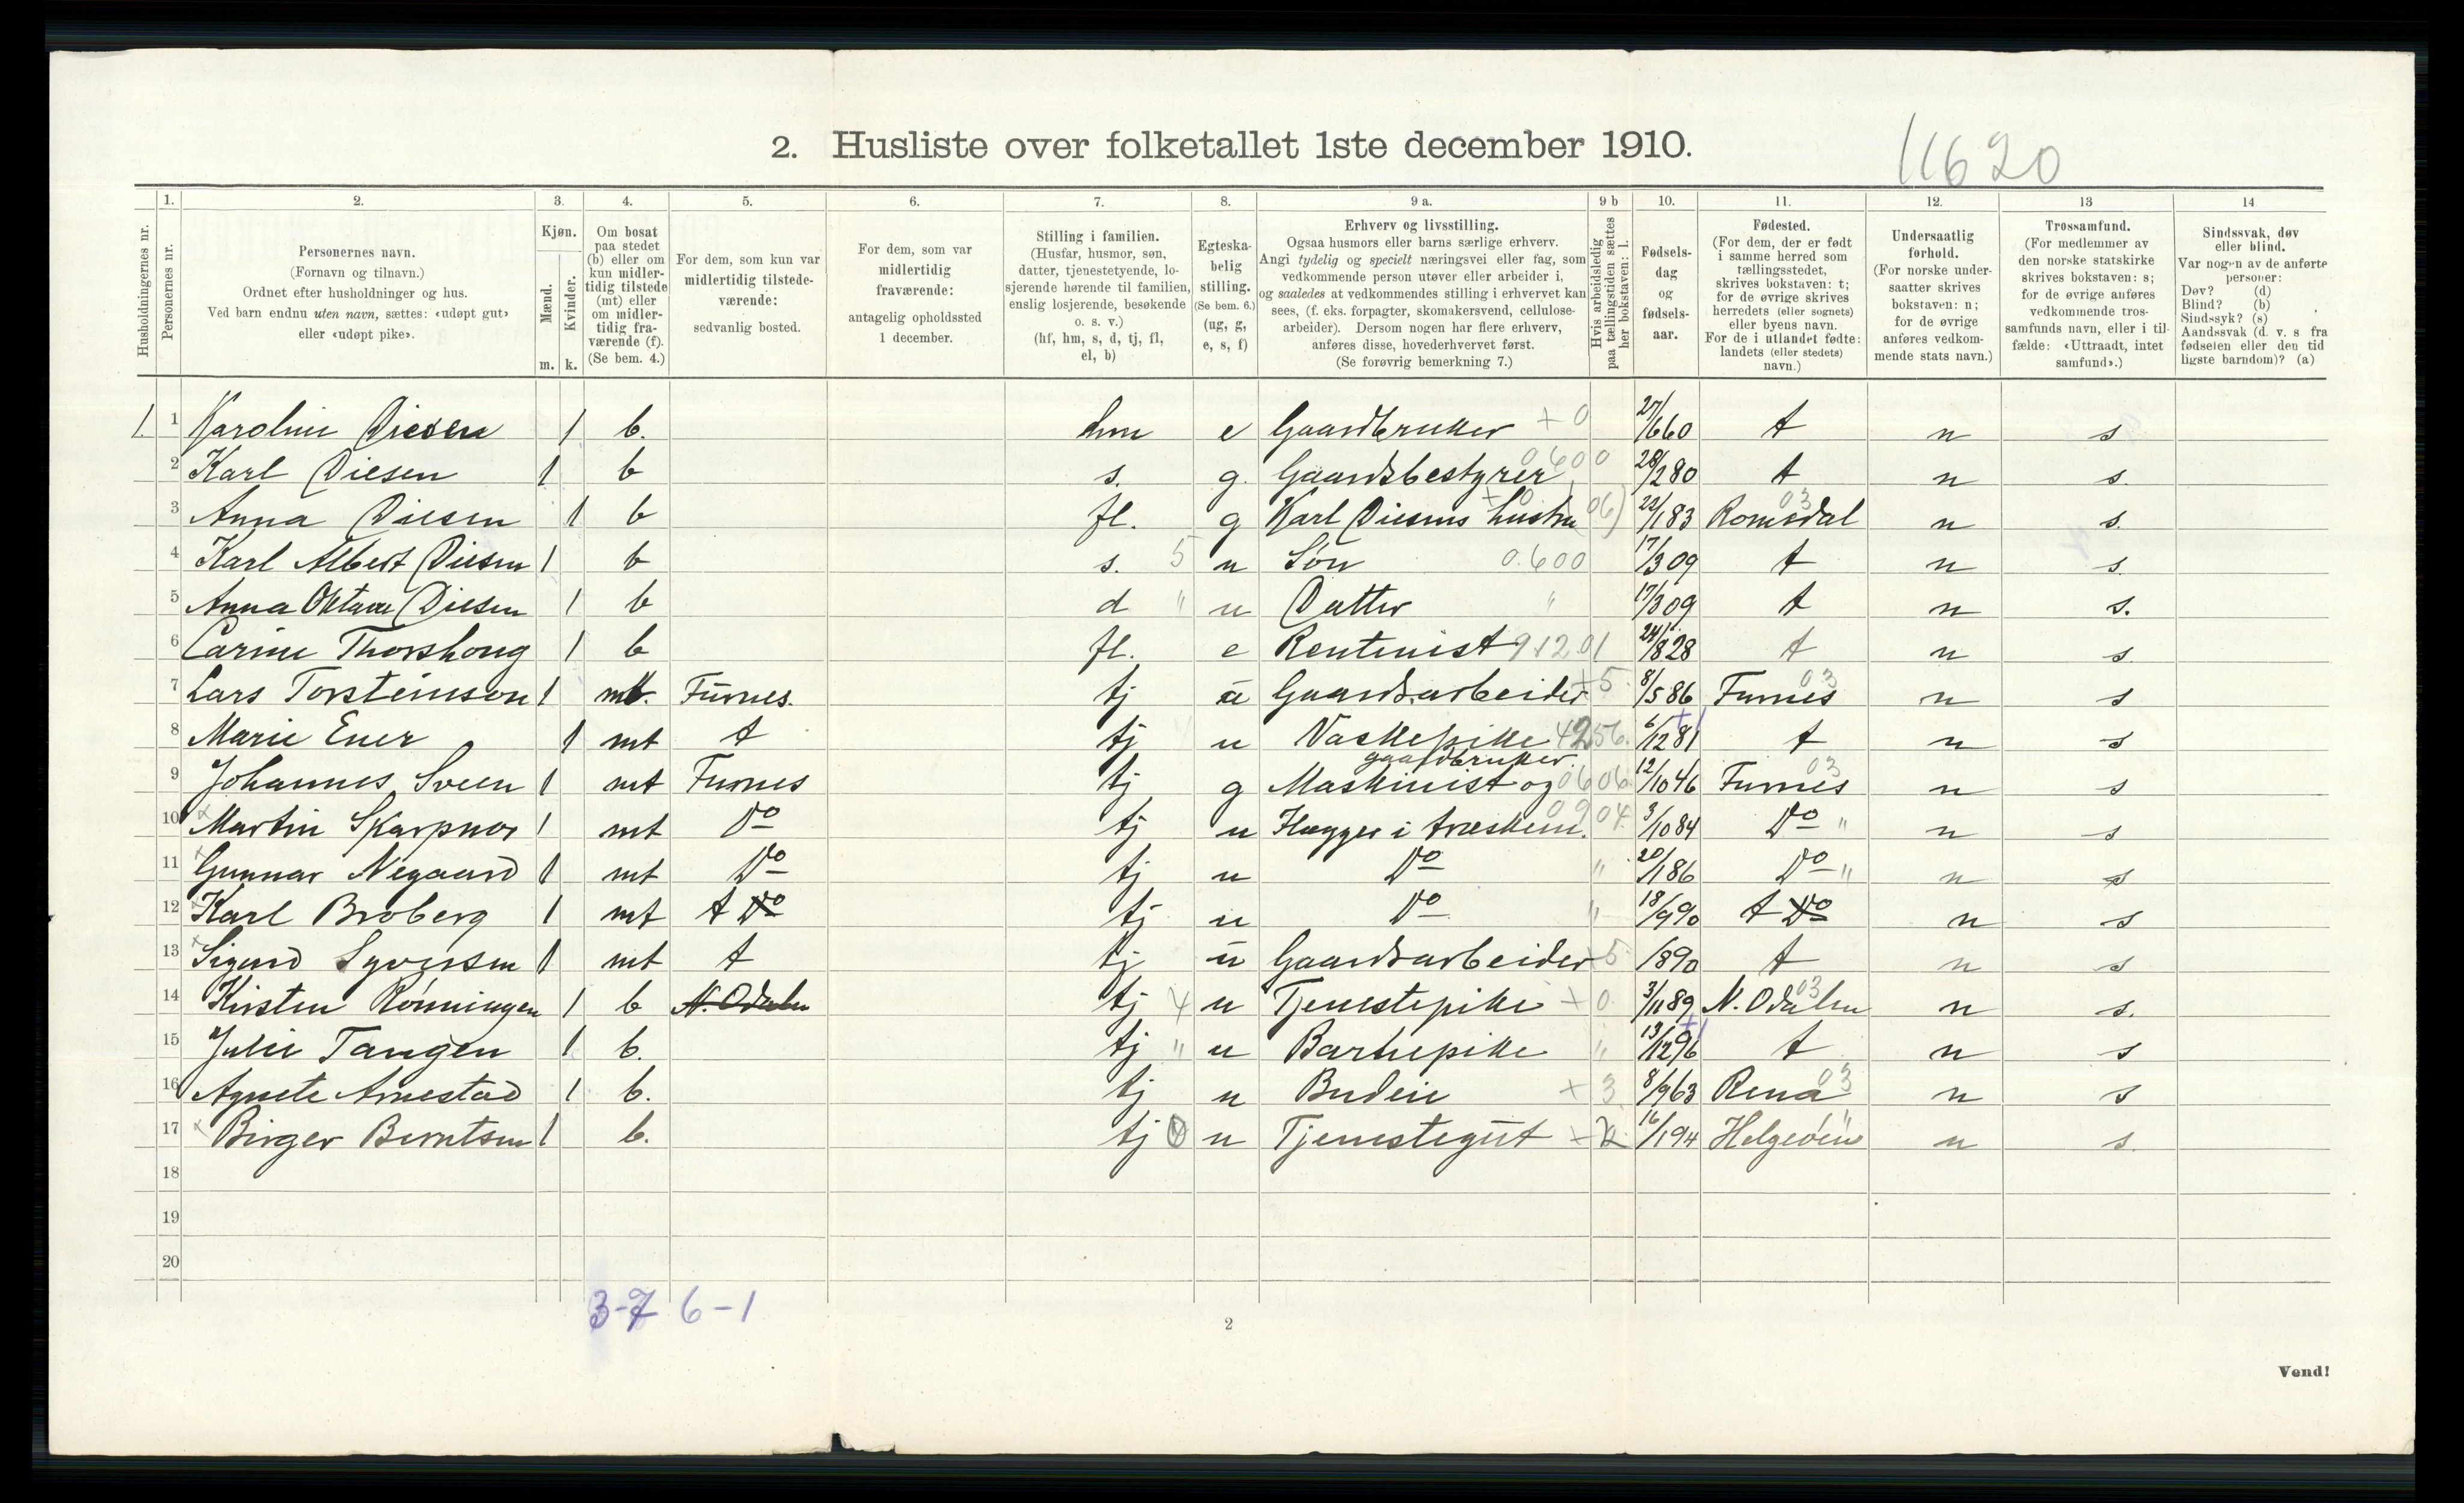 2. Husliste over folketallet 1ste december 1910.
11620
Husholdningernes nr.
1.
Personernes nr.
2.
Personernes navn.
(Fornavn og tilnavn.)
Ordnet efter husholdninger og hus.
Ved barn endnu uten navn, sættes: «udøpt gut»
eller «udøpt pike».
3.
Kjøn.
Mænd.
Kvinder.
m. k.
4.
Om bosat
paa stedet
(b) eller om
kun midler-
tidig tilstede
(mt) eller
om midler-
tidig fra-
værende (f).
(Se bem. 4.)
5.
For dem, som kun var
midlertidig tilstede-
værende:
sedvanlig bosted.
6.
For dem, som var
midlertidig
fraværende:
antagelig opholdssted
1 december.
7.
Stilling i familien.
(Husfar, husmor, søn,
datter, tjenestetyende, lo-
sjerende hørende til familien,
enslig losjerende, besøkende
o. s. v.)
(hf, hm, s, d, tj, fl,
el, b)
8.
Egteska-
belig
stilling.
(Se bem. 6.)
(ug, g,
e, s, f)
9 a.
Erhverv og livsstilling.
Ogsaa husmors eller barns særlige erhverv.
Angi tydelig og specielt næringsvei eller fag, som
vedkommende person utøver eller arbeider i,
og saaledes at vedkommendes stilling i erhvervet kan
sees, (f. eks. forpagter, skomakersvend, cellulose-
arbeider). Dersom nogen har flere erhverv,
anføres disse, hovederhvervet først.
(Se forøvrig bemerkning 7.)
9 b
Hvis arbeidsledig
paa tællingstiden sættes
her bokstaven: l.
10.
Fødsels-
dag
og
fødsels-
aar.
11.
Fødested.
(For dem, der er født
i samme herred som
tællingsstedet,
skrives bokstaven: t;
for de øvrige skrives
herredets (eller sognets)
eller byens navn.
For de i utlandet fødte:
landets (eller stedets)
navn.)
12.
Undersaatlig
forhold.
(For norske under-
saatter skrives
bokstaven: n;
for de øvrige
anføres vedkom-
mende stats navn.)
13
Trossamfund.
(For medlemmer av
den norske statskirke
skrives bokstaven: s;
for de øvrige anføres
vedkommende tros-
samfunds navn, eller i til-
fælde: «Uttraadt, intet
samfund».)
14
Sindssvak, døv
eller blind.
Var nogen av de anførte
personer:
Døv? (d)
Blind? (b)
Sindssyk? (s)
Aandssvak (d. v. s fra
fødselen eller den tid
ligste barndom)? (a)
1. 1 Karoline Diesen 1 b. hm e Gaardbruker + 0 27/6 60 t n s
2 Karl Diesen 1 b s. g. Gaardsbestyrer 0600 28/2 80 t n s.
3 Anna Diesen 1 b fl. g Karl Diesens hustru +0 (06) 22/1 83 Romsdal 03 n s.
4 Karl Albert Diesen 1 b s. 5 u Søn 0.600 17/3 09 t n s.
5 Anna Oktava Diesen 1 b d " u Datter " 17/3 09 t n s.
6 Carine Thorshoug 1 b fl. e Rentenist 912.01 24/8 28 t n s.
7 Lars Torsteinson 1 mt. Furnes. tj u Gaardsarbeider +5 8/5 86 Furnes 03 n s
8 Marie Ener 1 mt t tj u Vaskepike 4256. 6/12 81 t n s
9 Johannes Sveen 1 mt Furnes tj g Maskinist og gaardbruker. 0606 12/10 46 Furnes 03 n s
10 Martin Skarpnor 1 mt Do tj u Hugger i træskem. 0904 3/10 84 Do " n s
11 Gunnar Negaard 1 mt Do tj u Do " 20/1 86 Do " n s
12 Karl Broberg 1 mt t Do tj u Do " 18/9 90 t Do n s
13 Sigurd Syversen 1 mt t tj u Gaardsarbeider +5 1890 t n s
14 Kirsten Rønningen 1 b N. Odalen tj 4 u Tjenestepike +0 3/11 89 N. Odalen 03 n s.
15 Julie Tangen 1 b. tj " u Barnepike " 13/12 96 t n s
16 Agnete Arnestad 1 b. tj u Budeie + 3 8/9 63 Rena 03 n s
17 Birger Berntsen 1 b. tj u Tjenestegut + 2 16/1 94 Helgøen " n s.
18
19
20
3-7 6-1
2
Vend!